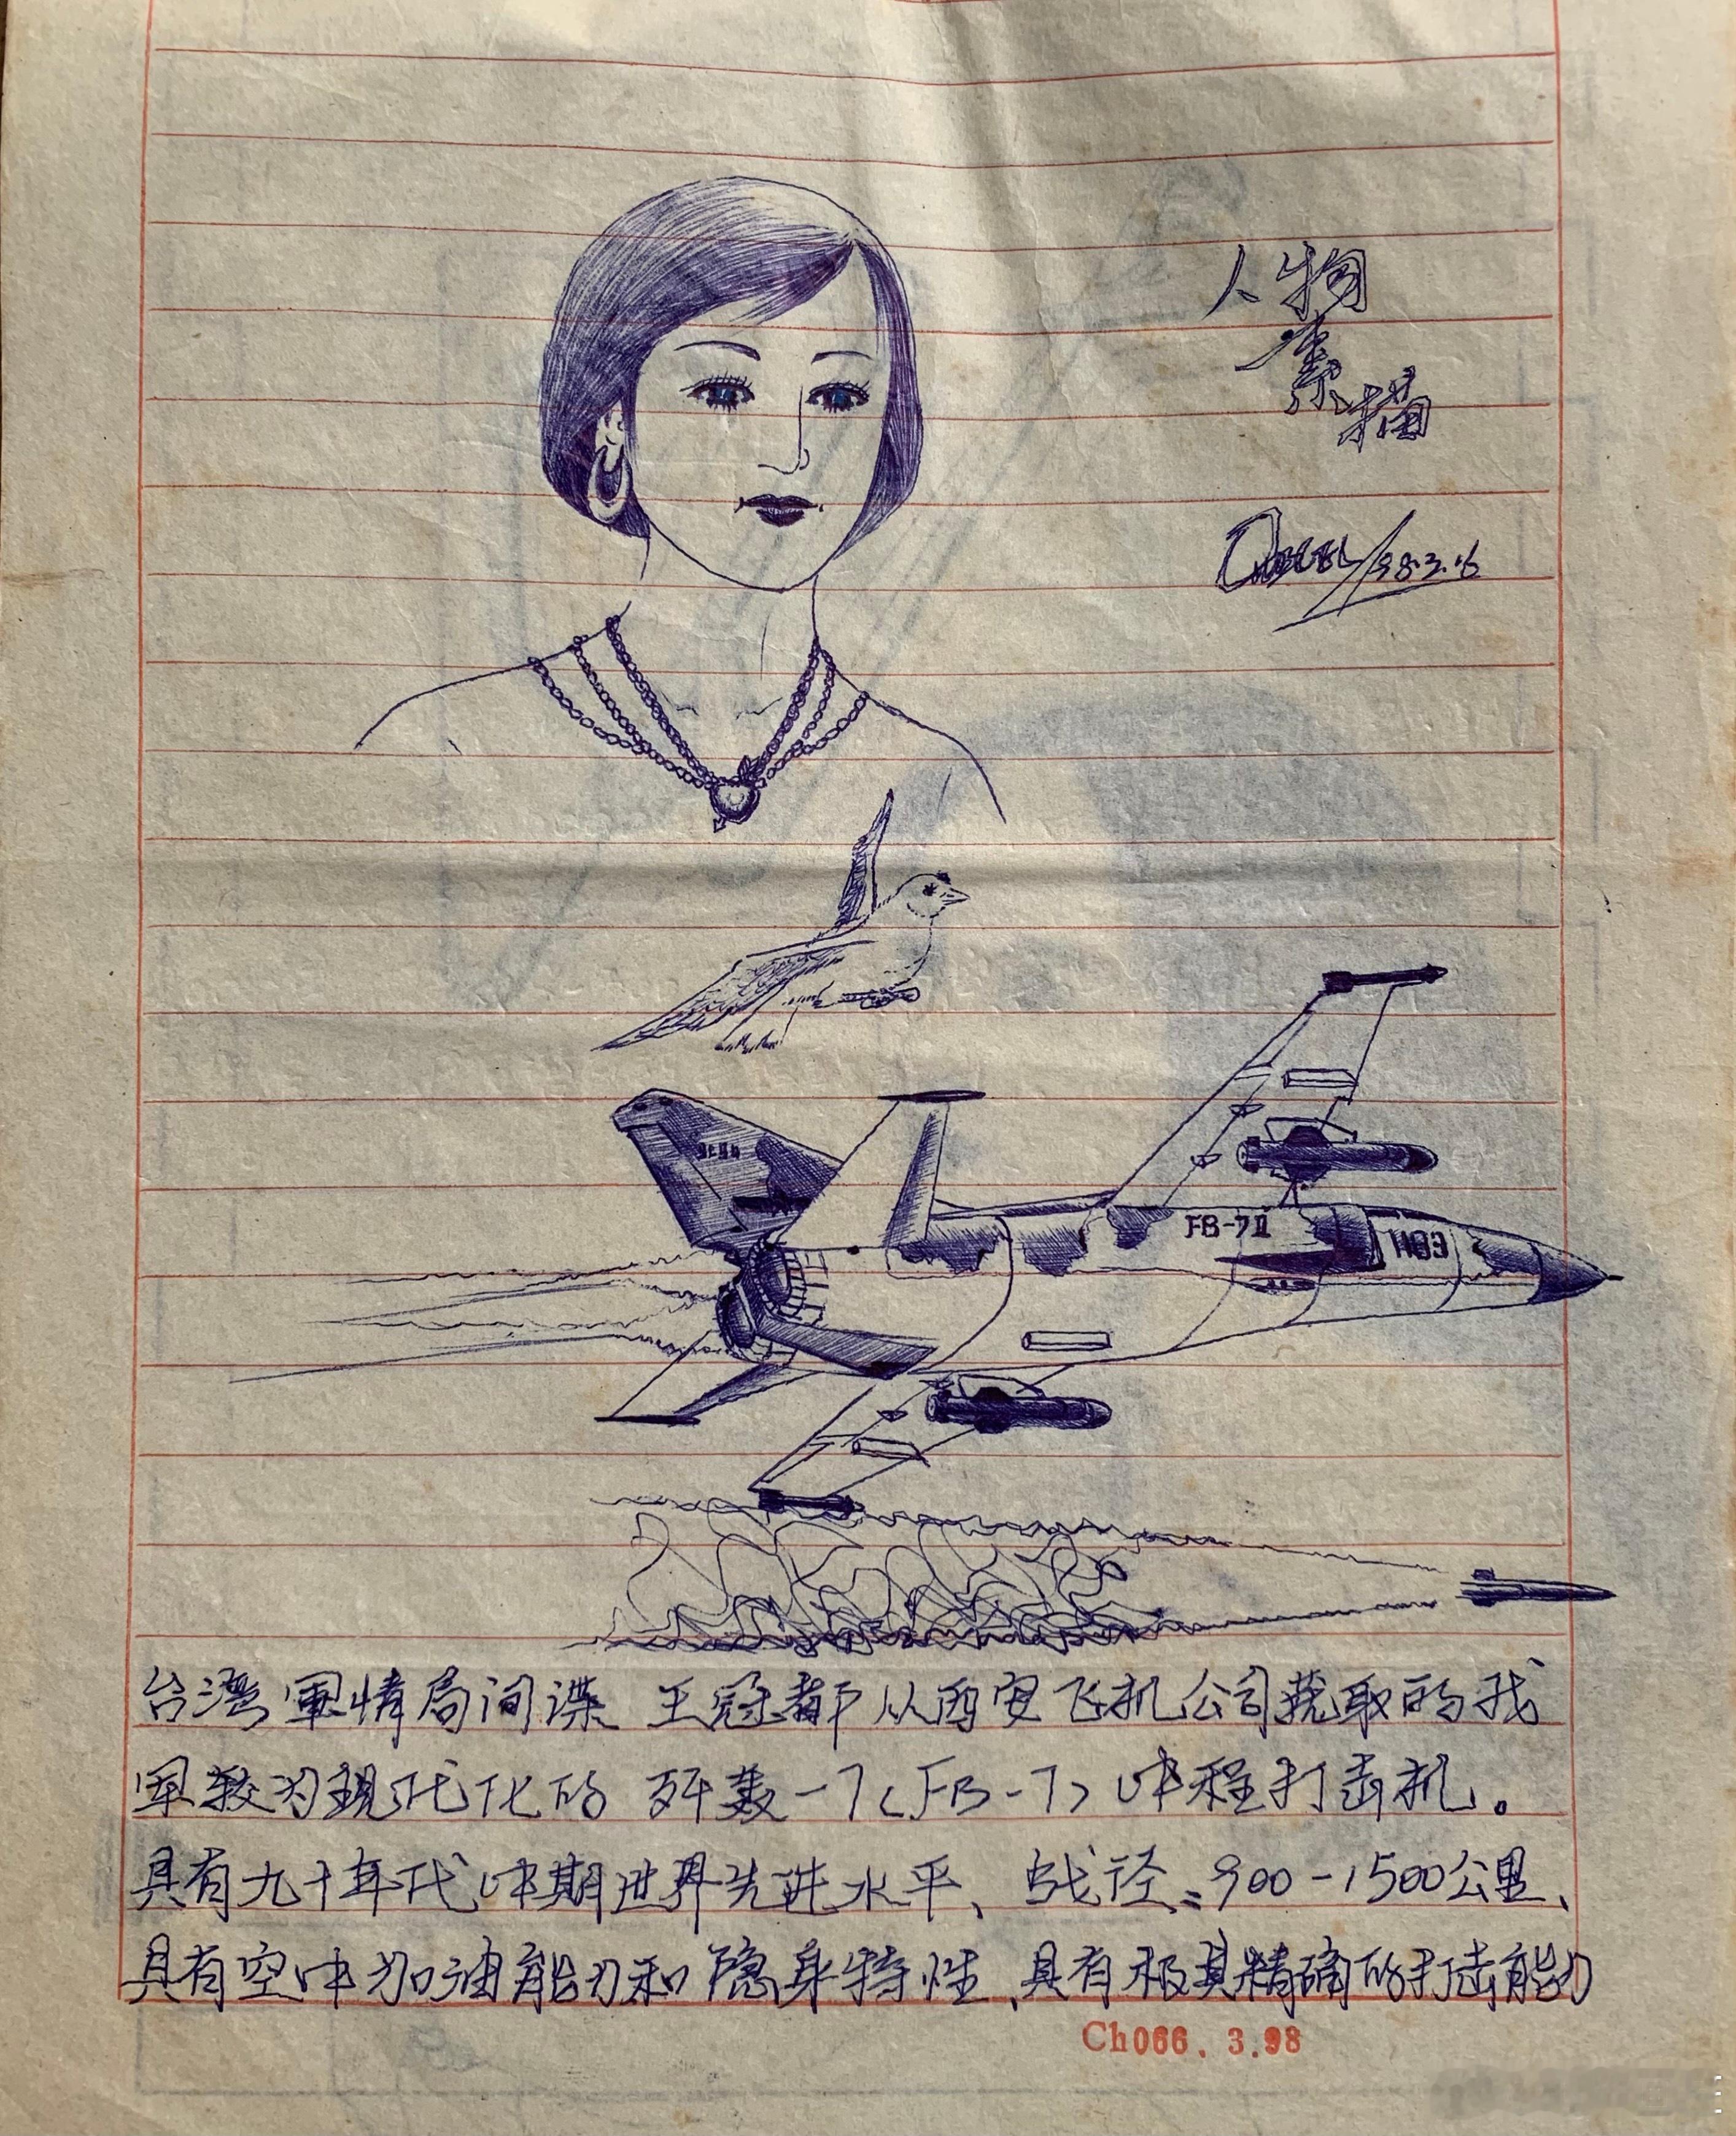 人物
素描
98.3.16
FB-7II
1183
台湾軍情局间谍 王冠都从西安飞机公司窃取的我
军较为現代化的 歼轰-7<FB-7>中程打击机。
具有九十年代中期世界先进水平、战径:900-1500公里、
具有空中加油能力和隐身特性、具有极其精确的打击能力
Ch066. 3.98